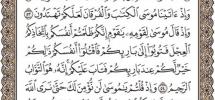 وَإِذْ ءَاتَيْنَا مُوسَى ٱلْكِتَٰبَ وَٱلْفُرْقَانَ لَعَلَّكُمْ تَهْتَدُونَ ٥٣
وَإِذْ قَالَ مُوسَىٰ لِقَوْمِهِۦ يَٰقَوْمِ إِنَّكُمْ ظَلَمْتُمْ أَنفُسَكُم بِٱتِّخَاذِكُمُ
ٱلْعِجْلَ فَتُوبُوٓا۟ إِلَىٰ بَارِئِكُمْ فَٱقْتُلُوٓا۟ أَنفُسَكُمْ ذَٰلِكُمْ
خَيْرٌ لَّكُمْ عِندَ بَارِئِكُمْ فَتَابَ عَلَيْكُمْ إِنَّهُۥ هُوَ ٱلتَّوَّابُ
ٱلرَّحِيمُ ٥٤ وَإِذْ قُلْتُمْ يَٰمُوسَىٰ لَن نُّؤْمِنَ لَكَ حَتَّىٰ نَرَى